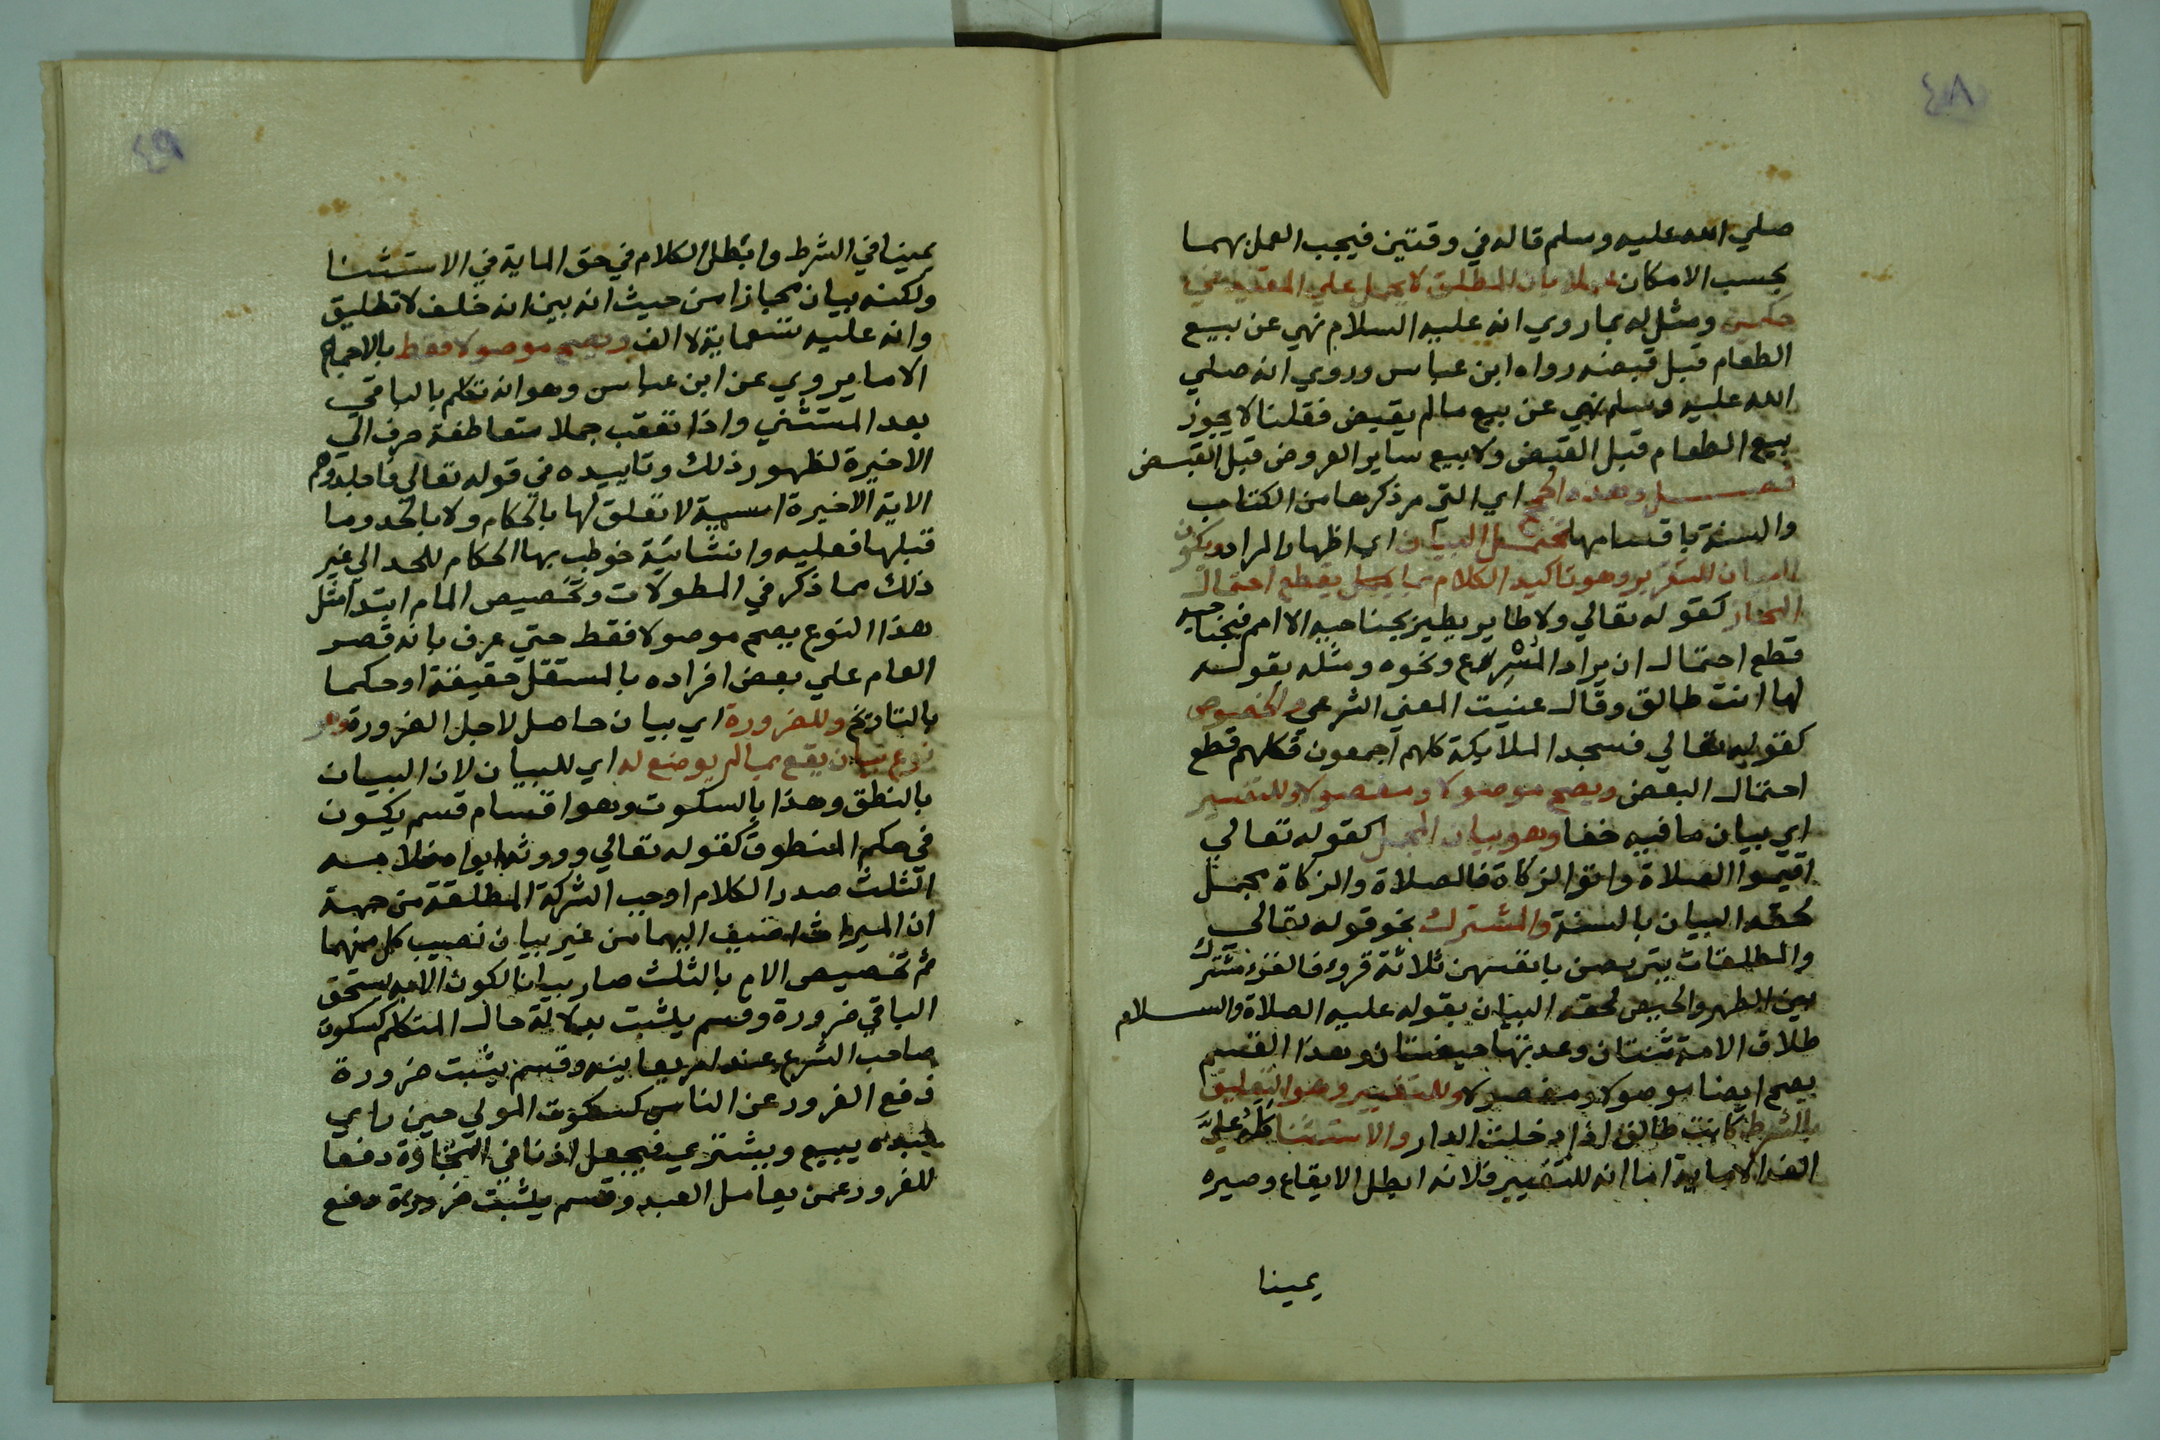 ٤٨
صلي الله عليه وسلم قاله في وقتين فيجب العمل بهما
بحسب الامكان عملا بان المطلق لا يحمل علي المقيد في
حكمين ومثل له بما روي انه عليه السلام نهي عن بيع
الطعام قبل قبضه رواه ابن عباس وروي انه صلي
الله عليه وسلم نهي عن بيع ما لم يقبض فقلنا لا يجوز
بيع الطعام قبل القبض ولا بيع ساير العروض قبل القبض
فصل وهذه الحجج اي التي مر ذكرها من الكتاب
والسنة باقسامها تحتمل البيان اي اظهار المراد ويكون
البيان للتقرير وهو تاكيد الكلام بما يقطع احتمال
المجاز كقوله تعالي ولا طاير يطير بجناحيه الا امم فبجناحيه
قطع احتمال ان يراد المسرع ونحوه ومثله بقوله
لها انت طالق وقال عنيت المعني الشرعي والخصوص
كقوله تعالي فسجد الملايكة كلهم اجمعون فكلهم قطع
احتمال البعض ويصح موصولا ومفصولا وللتفسير
اي بيان ما فيه خفا وهو بيان المجمل كقوله تعالي
اقيموا الصلاة واتوا الزكاة فالصلاة والزكاة مجمل
لحقه البيان بالسنة والمشترك نحو قوله تعالي
والمطلقات يتربصن بانفسهن ثلاثة قروء فالقرء مشترك
بين الطهر والحيض لحقه البيان بقوله عليه الصلاة والسلام
طلاق الامة ثنتان وعدتها حيضتان وهذا القسم
يصح ايضا موصولا ومفصولا وللتغيير وهو التعليق
بالشرط كانت طالق اذا دخلت الدار والاستثنا كله علي
الف الا ماية اما انه للتغيير فلانه ابطل الايقاع وصيره
يمينا
٤٩
يمينا في الشرط وابطل الكلام في حق الماية في الاستثنا
ولكنه بيان مجازا من حيث انه بين انه خلف لا تطليق
وانه عليه تسعماية لا الف ويصح موصولا فقط بالاجماع
الا ما يروي عن ابن عباس وهو انه تكلم بالباقي
بعد المستثني واذا تعقب جملا متعاطفة صرف الي
الاخيرة لظهور ذلك وتاييده في قوله تعالي فاجلدوهم
الاية الاخيرة اسمية لا تعلق لها بالحكام ولا بالحد وما
قبلها فعليه وانشائية خوطب بها الحكام للحد الي غير
ذلك مما ذكر في المطولات وتخصيص العام ابتدا مثل
هذا النوع يصح موصولا فقط حتي عرف بانه قصر
العام علي بعض افراده بالمستقل حقيقة او حكما
بالتاريخ وللضرورة اي بيان حاصل لاجل الضرورة وهو
نوع بيان يقع بما لم يوضع له اي للبيان لان البيان
بالنطق وهذا بالسكوت وهو اقسام قسم يكون
في حكم المنطوق كقوله تعالي وورثه ابواه فلامه
الثلث صدر الكلام اوجب الشركة المطلقة من جهة
ان الميراث اضيف اليهما من غير بيان نصيب كل منهما
ثم تخصيص الام بالثلث صار بيانا لكون الاب يستحق
الباقي ضرورة وقسم يثبت بدلالة حال المتكلم كسكوت
صاحب الشرع عند امر يعاينه وقسم يثبت ضرورة
دفع الغرور عن الناس كسكوت المولي حين راي
عبده يبيع ويشتري فيجعل اذنا في التجارة دفعا
للغرور عمن يعامل العبد وقسم يثبت ضرورة دفع